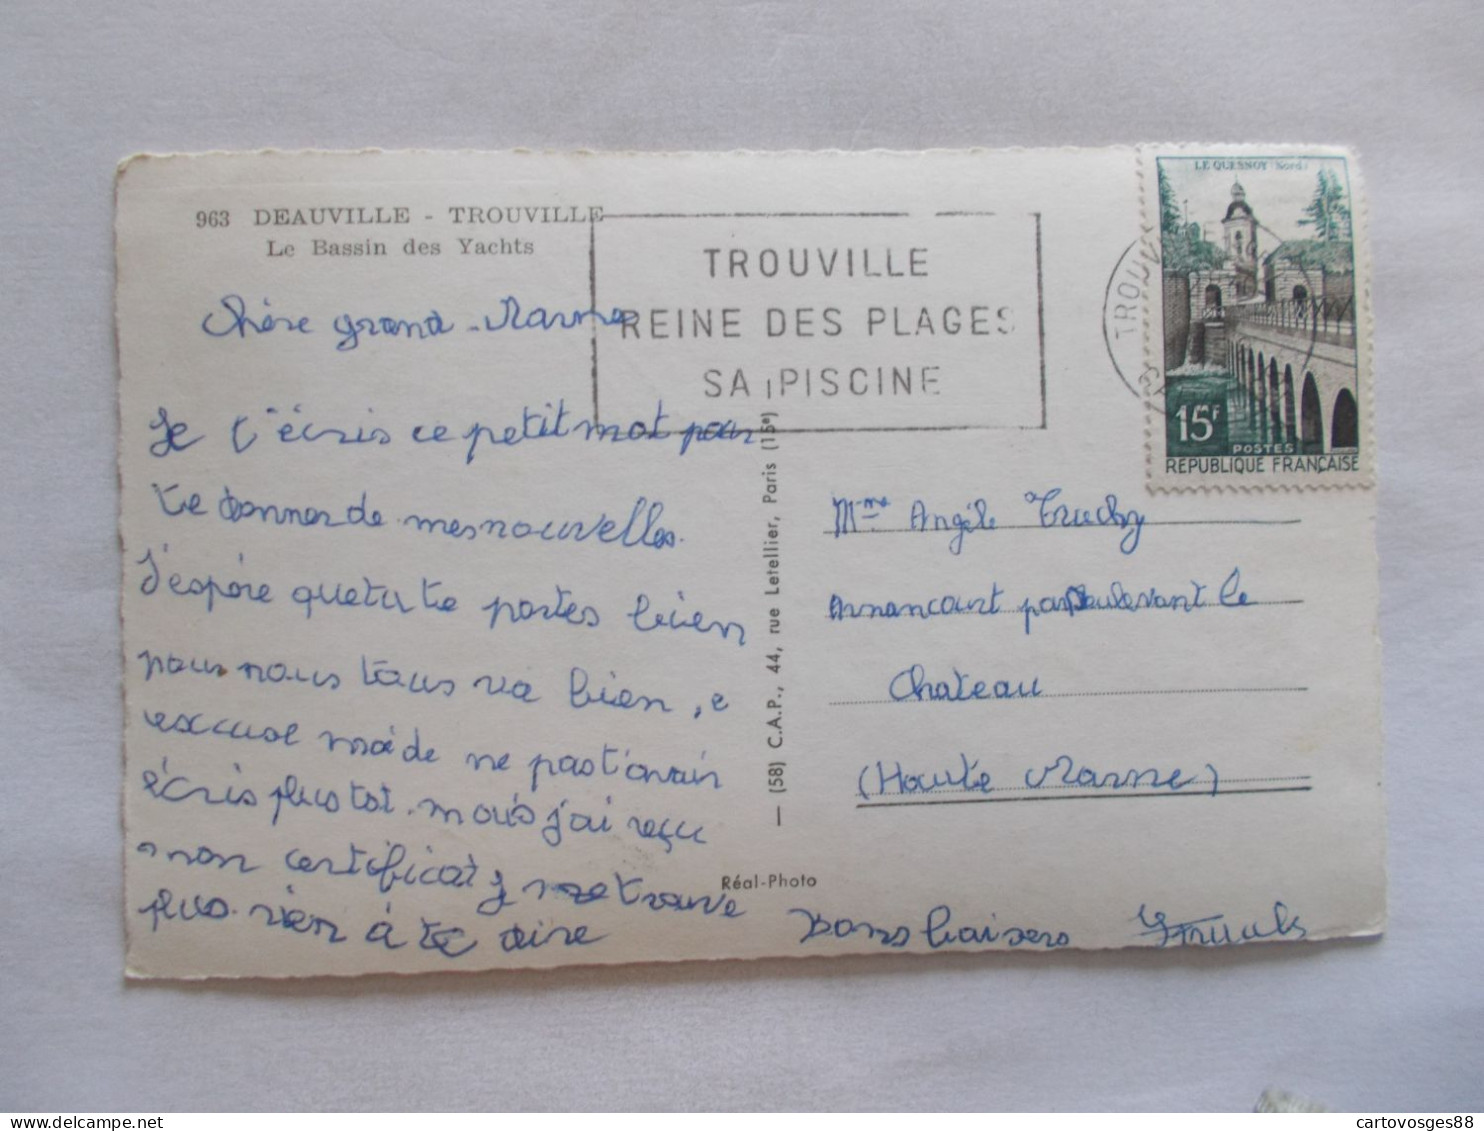 963 DEAUVILLE - TROUVILLE
Le Bassin des Yachts
TROUVILLE
REINE DES PLAGES
SA PISCINE
LE QUESNOY (Nord)
TROUV
15F
POSTES
REPUBLIQUE FRANÇAISE
Chère grand-Mame
Je t'écris ce petit mot pour
te donner de mes nouvelles.
J'espére que tu te portes bien
pour nous tous va bien, e
excuse moi de ne pas t'avair
écris plus tot. mais j'ai reçu
mon certificat, je ne trouve
plus rien à te dire
Bons baisers
— (58) C.A.P., 44, rue Letellier, Paris (15e)
Réal-Photo
Mme Angéle Truchy
Arnancourt par Doulevant le
Chateau
(Haute Marne)
cartovosges88